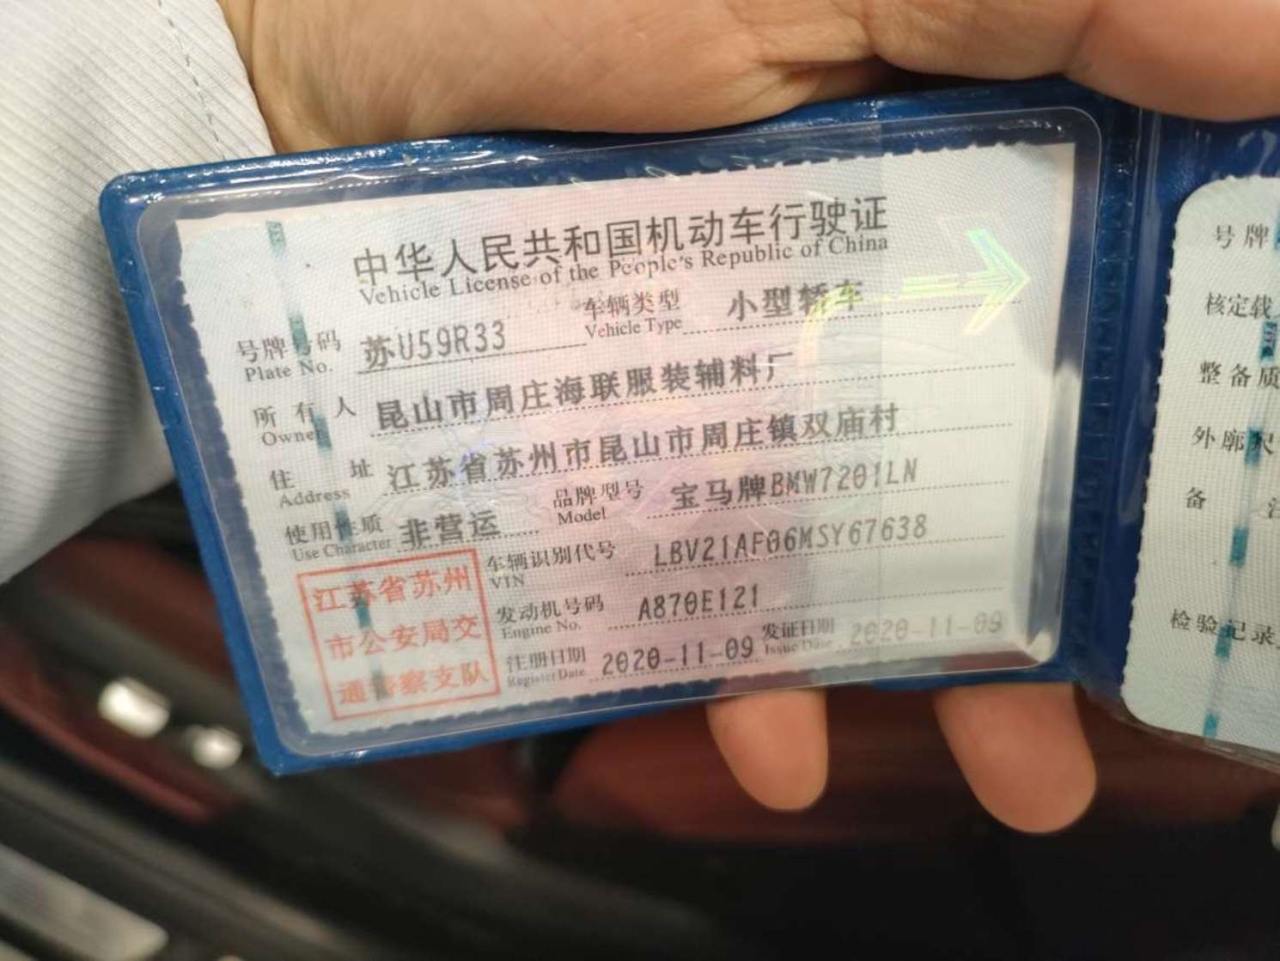 中华人民共和国机动车行驶证
Vehicle License of the People's Republic of China
号牌号码 苏U59R33 车辆类型 小型轿车
Plate No. Vehicle Type
所有人 昆山市周庄海联服装辅料厂
Owner
住址 江苏省苏州市昆山市周庄镇双庙村
Address
使用性质 非营运 品牌型号 宝马牌BMW7201LN
Use Character Model
江苏省苏州
市公安局交
通警察支队
车辆识别代号 LBV21AF06MSY67638
VIN
发动机号码 A870E121
Engine No.
注册日期 2020-11-09 发证日期 2020-11-09
Register Date Issue Date
号牌
核定载
整备质
外廓尺
备
检验记录